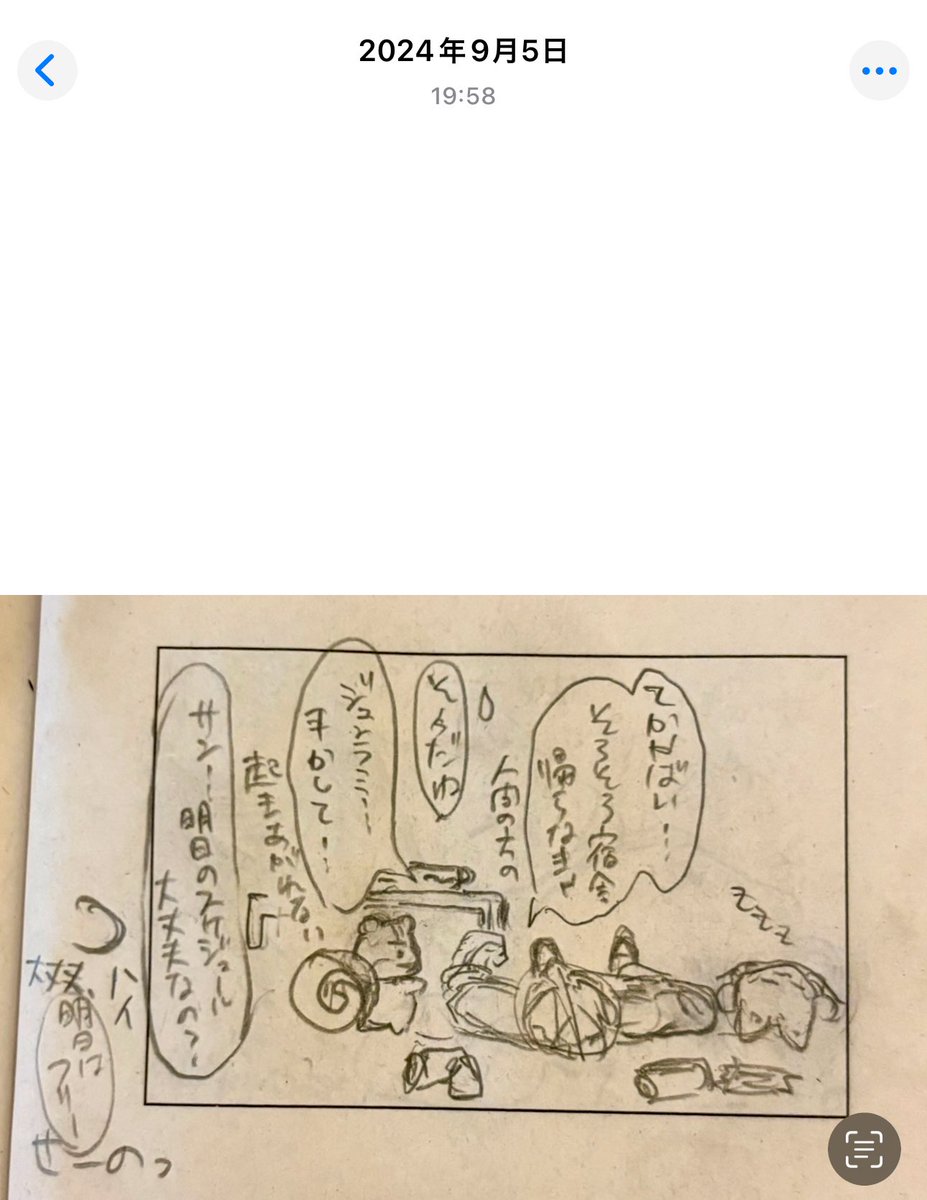 2024年9月5日
19:58
てかやばい…
そろそろ宿舎
帰らなきゃ
人間の大の
そうだね
ジュンラミー…
手かして…
起きあがれない
サン…明日のスケジュール
大丈夫なの?
zzz
ハイ
明日は
フリー
せーのっ